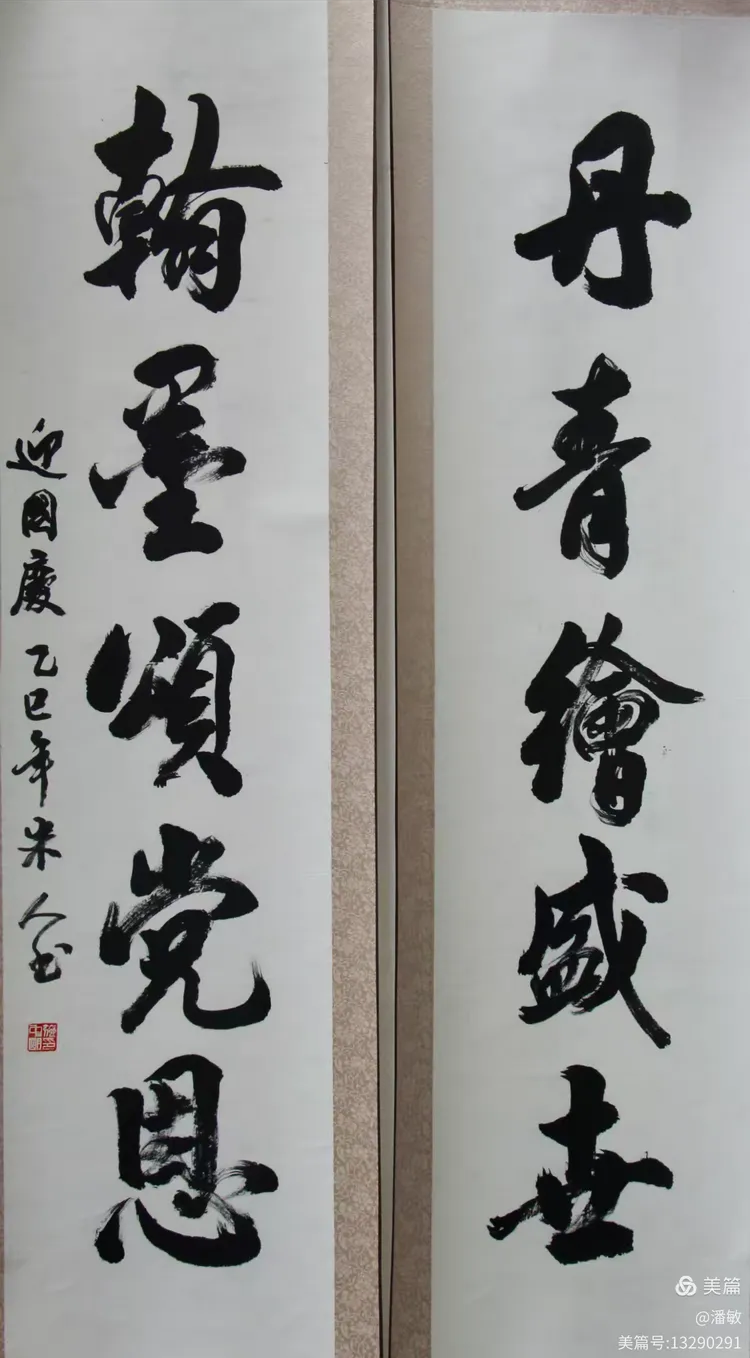 丹青繪盛世
翰墨頌党恩
迎国慶 乙巳年 朱人书
美篇
@潘敏
美篇号:13290291